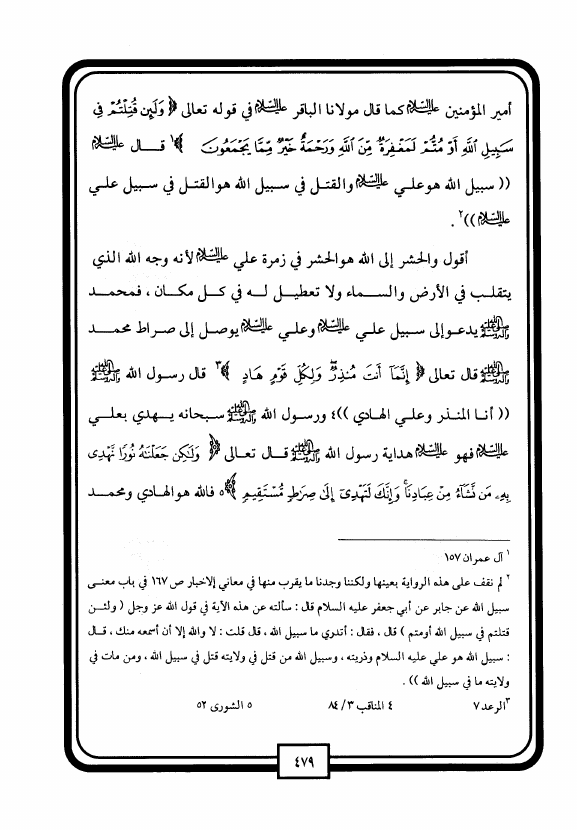 أمير المؤمنين عليه السلام كما قال مولانا الباقر عليه السلام في قوله تعالى ﴿ وَلَئِن قُتِلْتُمْ فِى
سَبِيلِ ٱللَّهِ أَوْ مُتُّمْ لَمَغْفِرَةٌ مِّنَ ٱللَّهِ وَرَحْمَةٌ خَيْرٌ مِّمَّا يَجْمَعُونَ ﴾١ قال عليه السلام
(( سبيل الله هوعلي عليه السلام والقتل في سبيل الله هوالقتل في سبيل علي
عليه السلام))٢ .
أقول والحشر إلى الله هوالحشر في زمرة علي عليه السلام لأنه وجه الله الذي
يتقلب في الأرض والسماء ولا تعطيل له في كل مكان ، فمحمد
ﷺ يدعوإلى سبيل علي عليه السلام وعلي عليه السلام يوصل إلى صراط محمد
ﷺ قال تعالى ﴿ إِنَّمَآ أَنتَ مُنذِرٌ ۖ وَلِكُلِّ قَوْمٍ هَادٍ ﴾٣ قال رسول الله ﷺ
(( أنا المنذر وعلي الهادي ))٤ ورسول الله ﷺ سبحانه يهدي بعلي
عليه السلام فهو عليه السلام هداية رسول الله ﷺ قال تعالى ﴿ وَلَٰكِن جَعَلْنَٰهُ نُورًا نَّهْدِى
بِهِۦ مَن نَّشَآءُ مِنْ عِبَادِنَا ۚ وَإِنَّكَ لَتَهْدِىٓ إِلَىٰ صِرَٰطٍ مُّسْتَقِيمٍ ﴾٥ فالله هوالهادي ومحمد
١ آل عمران ١٥٧
٢ لم نقف على هذه الرواية بعينها ولكننا وجدنا ما يقرب منها في معاني الإخبار ص ١٦٧ في باب معنى
سبيل الله عن جابر عن أبي جعفر عليه السلام قال : سألته عن هذه الآية في قول الله عز وجل ( ولئن
قتلتم في سبيل الله أومتم ) قال ، فقال : أتدري ما سبيل الله ، قال قلت : لا والله إلا أن أسمعه منك ، قال
: سبيل الله هو علي عليه السلام وذريته ، وسبيل الله من قتل في ولايته قتل في سبيل الله ، ومن مات في
ولايته ما في سبيل الله )) .
٣الرعد ٧ ٤ المناقب ٣/ ٨٤ ٥ الشورى ٥٢
٤٧٩